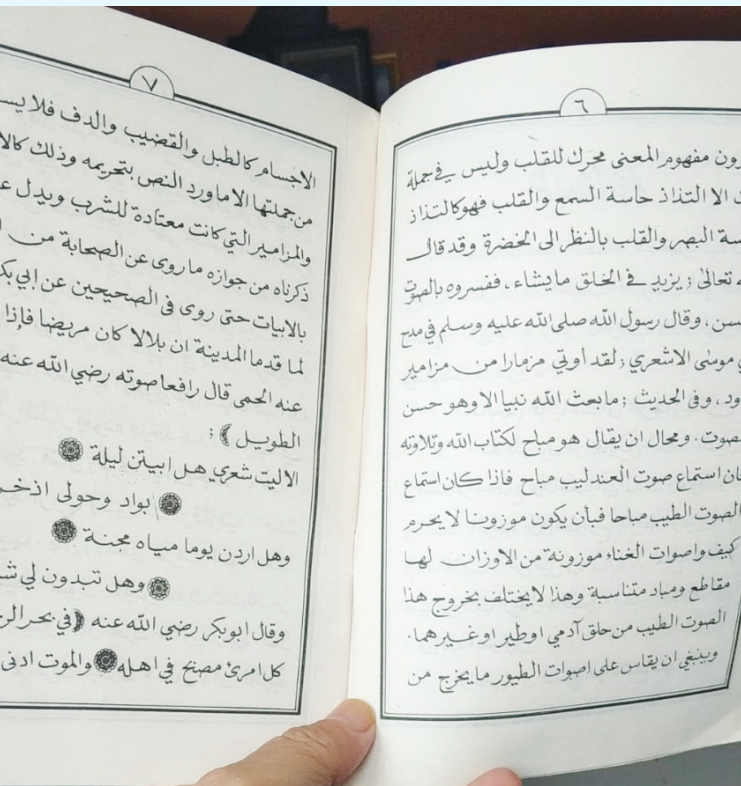 ٦
مفهوم المعنى محرك للقلب وليس في جملة
الا التذاذ حاسة السمع والقلب فهو كالتذاذ
البصر والقلب بالنظر الى الخضرة وقد قال
تعالى ; يزيد في الخلق ما يشاء ، ففسروه بالصوت
وقال رسول الله صلى الله عليه وسلم في مدح
موسى الاشعري ; لقد أوتي مزمارا من مزامير
وفي الحديث ; ما بعث الله نبيا الا وهو حسن
ومحال ان يقال هو مباح لكتاب الله وتلاوته
استماع صوت العندليب مباح فاذا كان استماع
الصوت الطيب مباحا فبأن يكون موزونا لا يحرم
كيف واصوات الغناء موزونة من الاوزان لها
مقاطع ومباد متناسبة وهذا لا يختلف بخروج هذا
الصوت الطيب من حلق آدمي او طير او غيرهما .
وينبغي ان يقاس على اصوات الطيور ما يخرج من
٧
الاجسام كالطبل والقضيب والدف فلا
من جملتها الا ما ورد النص بتحريمه وذلك
والمزامير التي كانت معتادة للشرب ويدل
ذكرناه من جوازه ما روى عن الصحابة من
بالابيات حتى روى في الصحيحين عن ابي
لما قدما المدينة ان بلالا كان مريضا فإذا
عنه الحمى قال رافعا صوته رضي الله عنه
الطويل ) ;
الا ليت شعري هل ابيتن ليلة
بواد وحولى
وهل اردن يوما مياه مجنة
وهل تبدون لي
وقال ابو بكر رضي الله عنه ( في بحر
كل امرئ مصبح في اهله والموت ادنى